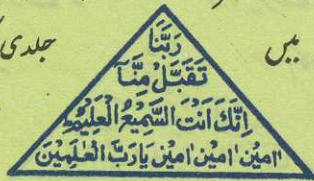 میں جلدی
رَبَّنَا
تَقَبَّلْ مِنَّآ
اِنَّكَ اَنْتَ السَّمِيْعُ الْعَلِيْمُ
اٰمِيْن اٰمِيْن اٰمِيْن يَارَبَّ الْعٰلَمِيْنَ